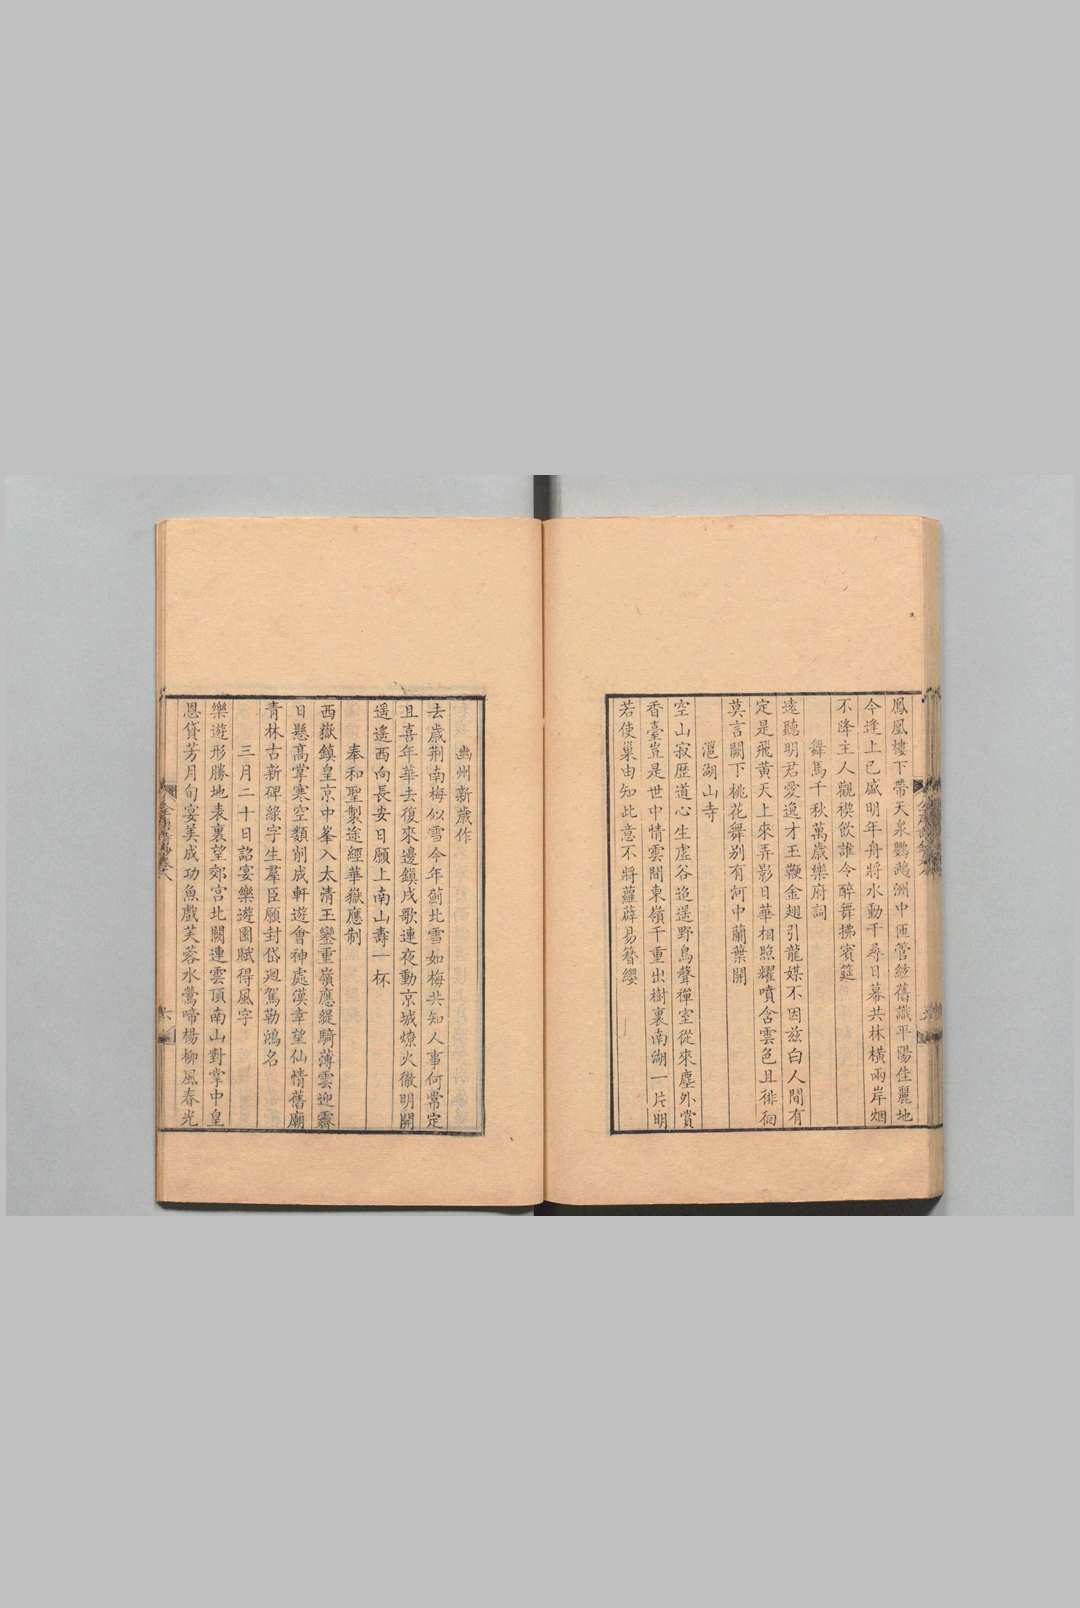 鳳凰樓下帶天泉鸚鵡洲中匝管絃舊識平陽佳麗地
今逢上巳盛明年舟將水動千尋日幕共林橫兩岸烟
不降主人觀禊飲誰令醉舞拂賓筵
舞馬千秋萬歲樂府詞
遠聽明君愛逸才玉鞭金翅引龍媒不因兹白人間有
定是飛黃天上來弄影日華相照耀噴含雲色且徘徊
莫言闕下桃花舞别有河中蘭葉開
㴩湖山寺
空山寂歷道心生虛谷迢遥野鳥聲禪室從來塵外賞
香臺豈是世中情雲間東嶺千重出樹裏南湖一片明
若使巢由知此意不將蘿薜易簪纓
幽州新歲作
去歲荆南梅似雪今年薊北雪如梅共知人事何常定
且喜年華去復來邊鎮戍歌連夜動京城燎火徹明開
遥遥西向長安日願上南山壽一杯
奉和聖製途經華嶽應制
西嶽鎮皇京中峯入太清玉鑾重嶺應緹騎薄雲迎霽
日懸高掌寒空類削成軒遊會神處漢幸望仙情舊廟
青林古新碑綠字生羣臣願封岱迴駕勒鴻名
三月二十日詔宴樂遊園賦得風字
樂遊形勝地表裏望郊宮北闕連雲頂南山對掌中皇
恩貸芳月旬宴美成功魚戲芙蓉水鶯啼楊柳風春光
六